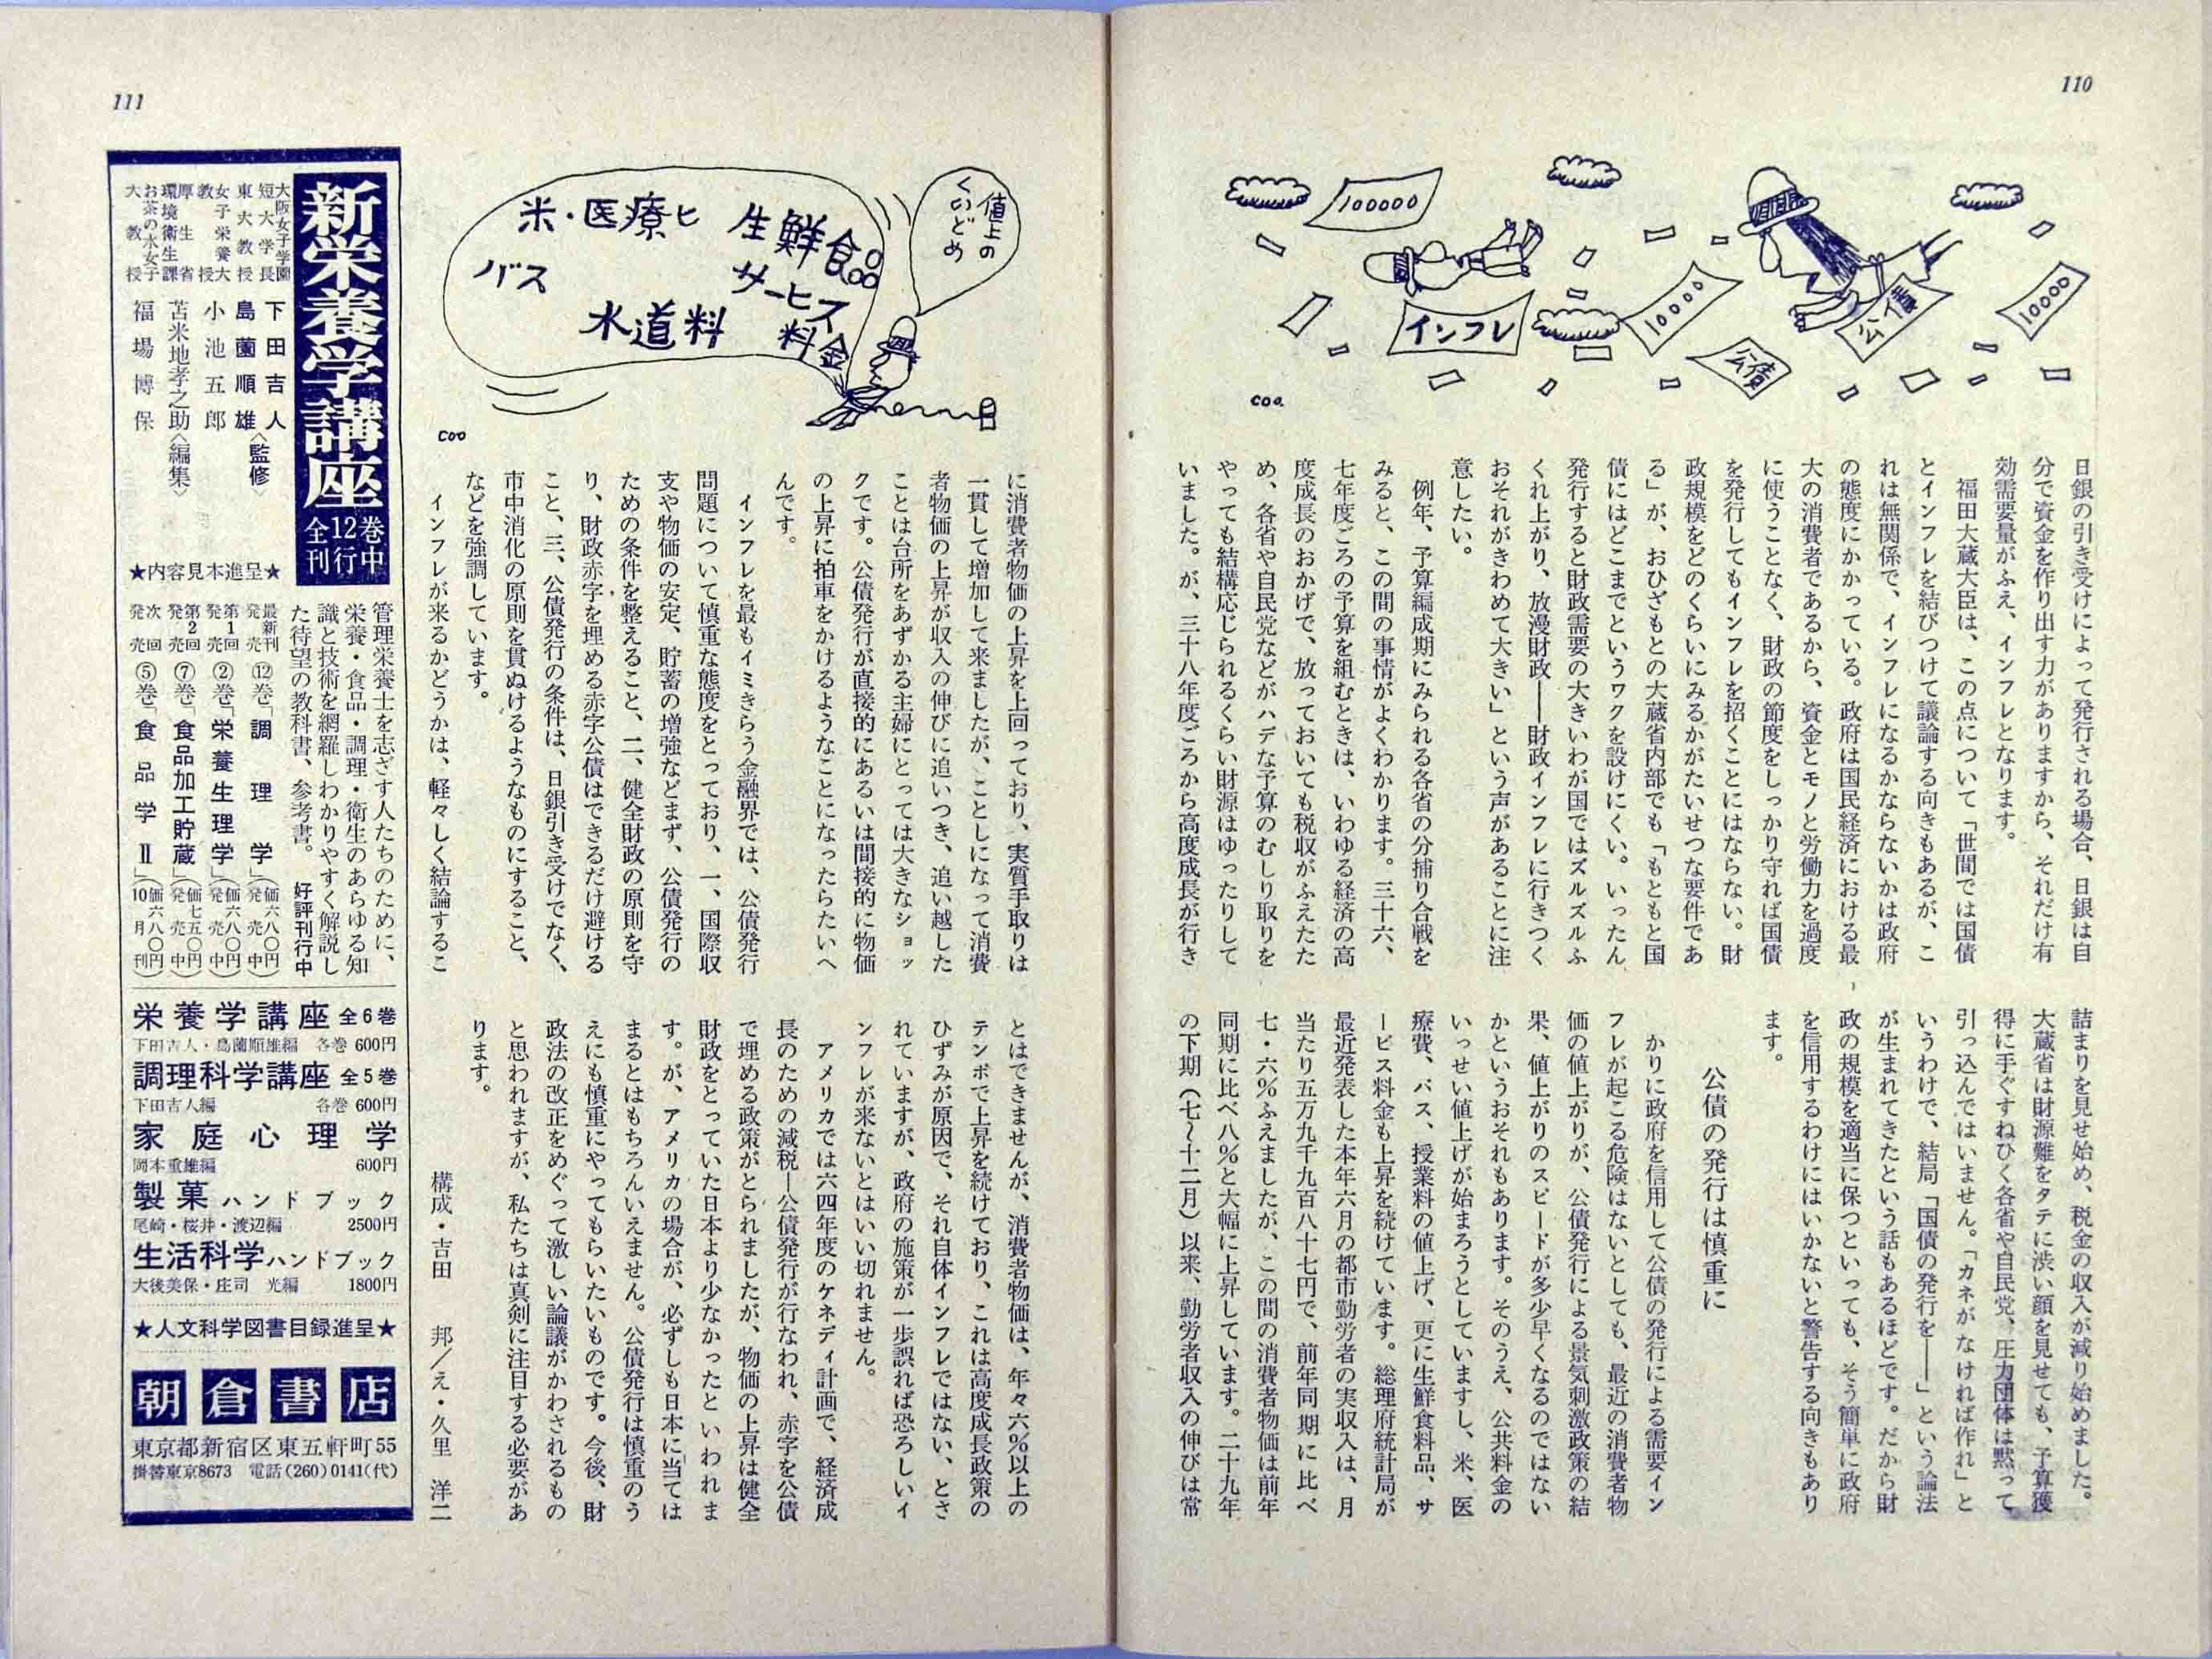 110
100000
インフレ
10000
公債
公債
10000
coo.
日銀の引き受けによって発行される場合、日銀は自
分で資金を作り出す力がありますから、それだけ有
効需要量がふえ、インフレとなります。
福田大蔵大臣は、この点について「世間では国債
とインフレを結びつけて議論する向きもあるが、こ
れは無関係で、インフレになるかならないかは政府
の態度にかかっている。政府は国民経済における最
大の消費者であるから、資金とモノと労働力を過度
に使うことなく、財政の節度をしっかり守れば国債
を発行してもインフレを招くことにはならない。財
政規模をどのくらいにみるかがたいせつな要件であ
る」が、おひざもとの大蔵省内部でも「もともと国
債にはどこまでというワクを設けにくい。いったん
発行すると財政需要の大きいわが国ではズルズルふ
くれ上がり、放漫財政――財政インフレに行きつく
おそれがきわめて大きい」という声があることに注
意したい。
例年、予算編成期にみられる各省の分捕り合戦を
みると、この間の事情がよくわかります。三十六、
七年度ごろの予算を組むときは、いわゆる経済の高
度成長のおかげで、放っておいても税収がふえたた
め、各省や自民党などがハデな予算のむしり取りを
やっても結構応じられるくらい財源はゆったりして
いました。が、三十八年度ごろから高度成長が行き
詰まりを見せ始め、税金の収入が減り始めました。
大蔵省は財源難をタテに渋い顔を見せても、予算獲
得に手ぐすねひく各省や自民党、圧力団体は黙って
引っ込んではいません。「カネがなければ作れ」と
いうわけで、結局「国債の発行を――」という論法
が生まれてきたという話もあるほどです。だから財
政の規模を適当に保つといっても、そう簡単に政府
を信用するわけにはいかないと警告する向きもあり
ます。
公債の発行は慎重に
かりに政府を信用して公債の発行による需要イン
フレが起こる危険はないとしても、最近の消費者物
価の値上がりが、公債発行による景気刺激政策の結
果、値上がりのスピードが多少早くなるのではない
かというおそれもあります。そのうえ、公共料金の
いっせい値上げが始まろうとしていますし、米、医
療費、バス、授業料の値上げ、更に生鮮食料品、サ
ービス料金も上昇を続けています。総理府統計局が
最近発表した本年六月の都市勤労者の実収入は、月
当たり五万九千九百八十七円で、前年同期に比べ
七・六％ふえましたが、この間の消費者物価は前年
同期に比べ八％と大幅に上昇しています。二十九年
の下期（七〜十二月）以来、勤労者収入の伸びは常
111
値上の
くいどめ
米・医療ヒ
生鮮食品
バス
サービス
料金
水道料
coo
に消費者物価の上昇を上回っており、実質手取りは
一貫して増加して来ましたが、ことしになって消費
者物価の上昇が収入の伸びに追いつき、追い越した
ことは台所をあずかる主婦にとっては大きなショッ
クです。公債発行が直接的にあるいは間接的に物価
の上昇に拍車をかけるようなことになったらたいへ
んです。
インフレを最もイミきらう金融界では、公債発行
問題について慎重な態度をとっており、一、国際収
支や物価の安定、貯蓄の増強などまず、公債発行の
ための条件を整えること、二、健全財政の原則を守
り、財政赤字を埋める赤字公債はできるだけ避ける
こと、三、公債発行の条件は、日銀引き受けでなく、
市中消化の原則を貫ぬけるようなものにすること、
などを強調しています。
インフレが来るかどうかは、軽々しく結論するこ
とはできませんが、消費者物価は、年々六％以上の
テンポで上昇を続けており、これは高度成長政策の
ひずみが原因で、それ自体インフレではない、とさ
れていますが、政府の施策が一歩誤れば恐ろしいイ
ンフレが来ないとはいい切れません。
アメリカでは六四年度のケネディ計画で、経済成
長のための減税―公債発行が行なわれ、赤字を公債
で埋める政策がとられましたが、物価の上昇は健全
財政をとっていた日本より少なかったといわれま
す。が、アメリカの場合が、必ずしも日本に当ては
まるとはもちろんいえません。公債発行は慎重のう
えにも慎重にやってもらいたいものです。今後、財
政法の改正をめぐって激しい論議がかわされるもの
と思われますが、私たちは真剣に注目する必要があ
ります。
構成・吉田　邦／え・久里　洋二
新栄養学講座
全12巻
刊行中
大阪女子学園
短大学長
下田吉人
東大教授
島薗順雄
〈監修〉
女子栄養大
教授
小池五郎
厚生省
環境衛生課
苫米地孝之助
お茶の水女子
大教授
福場博保
〈編集〉
★内容見本進呈★
管理栄養士を志ざす人たちのために、
栄養・食品・調理・衛生のあらゆる知
識と技術を網羅しわかりやすく解説し
た待望の教科書、参考書。
好評刊行中
最新刊
発売
⑫巻「調理学」（価六八〇円 発売中）
第1回
発売
②巻「栄養生理学」（価六八〇円 発売中）
第2回
発売
⑦巻「食品加工貯蔵」（価七五〇円 発売中）
次回
発売
⑤巻「食品学Ⅱ」（価六八〇円 10月刊）
栄養学講座 全6巻
下田吉人・島薗順雄編 各巻 600円
調理科学講座 全5巻
下田吉人編 各巻 600円
家庭心理学
岡本重雄編 600円
製菓ハンドブック
尾崎・桜井・渡辺編 2500円
生活科学ハンドブック
大後美保・庄司 光編 1800円
★人文科学図書目録進呈★
朝倉書店
東京都新宿区東五軒町55
振替東京8673 電話(260)0141(代)